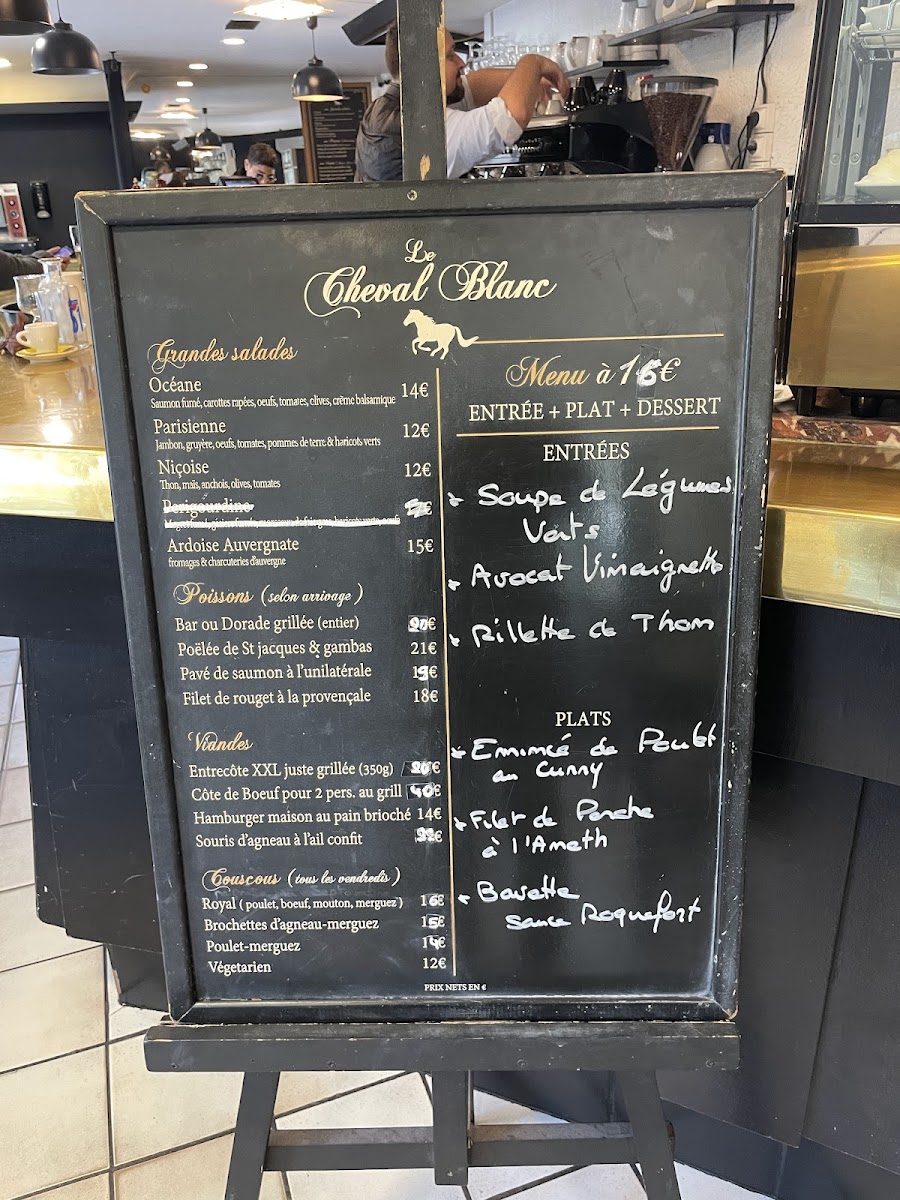 Le
Cheval Blanc
Grandes salades
Océane 14€
Saumon fumé, carottes rapées, oeufs, tomates, olives, crème balsamique
Parisienne 12€
Jambon, gruyère, oeufs, tomates, pommes de terre & haricots verts
Niçoise 12€
Thon, maïs, anchois, olives, tomates
Perigourdine
Ardoise Auvergnate 15€
fromages & charcuteries d'auvergne
Poissons (selon arrivage)
Bar ou Dorade grillée (entier) 20€
Poëlée de St jacques & gambas 21€
Pavé de saumon à l'unilatérale 19€
Filet de rouget à la provençale 18€
Viandes
Entrecôte XXL juste grillée (350g) 20€
Côte de Boeuf pour 2 pers. au grill 40€
Hamburger maison au pain brioché 14€
Souris d'agneau à l'ail confit
Couscous (tous les vendredis)
Royal ( poulet, boeuf, mouton, merguez ) 16€
Brochettes d'agneau-merguez 15€
Poulet-merguez 14€
Végetarien 12€
Menu à 16€
ENTRÉE + PLAT + DESSERT
ENTRÉES
Soupe de Légumes
Verts
Avocat Vinaigrette
Rillette de Thon
PLATS
Emincé de Poulet
au curry
Filet de Perche
à l'Aneth
Bavette
sauce Roquefort
PRIX NETS EN €